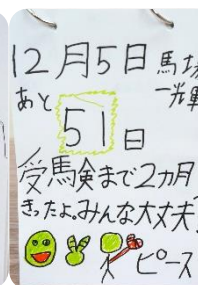 12月5日 馬場
一輝
あと
51日
受馬険まで2カ月
きったよ。みんな大丈夫?
ピース